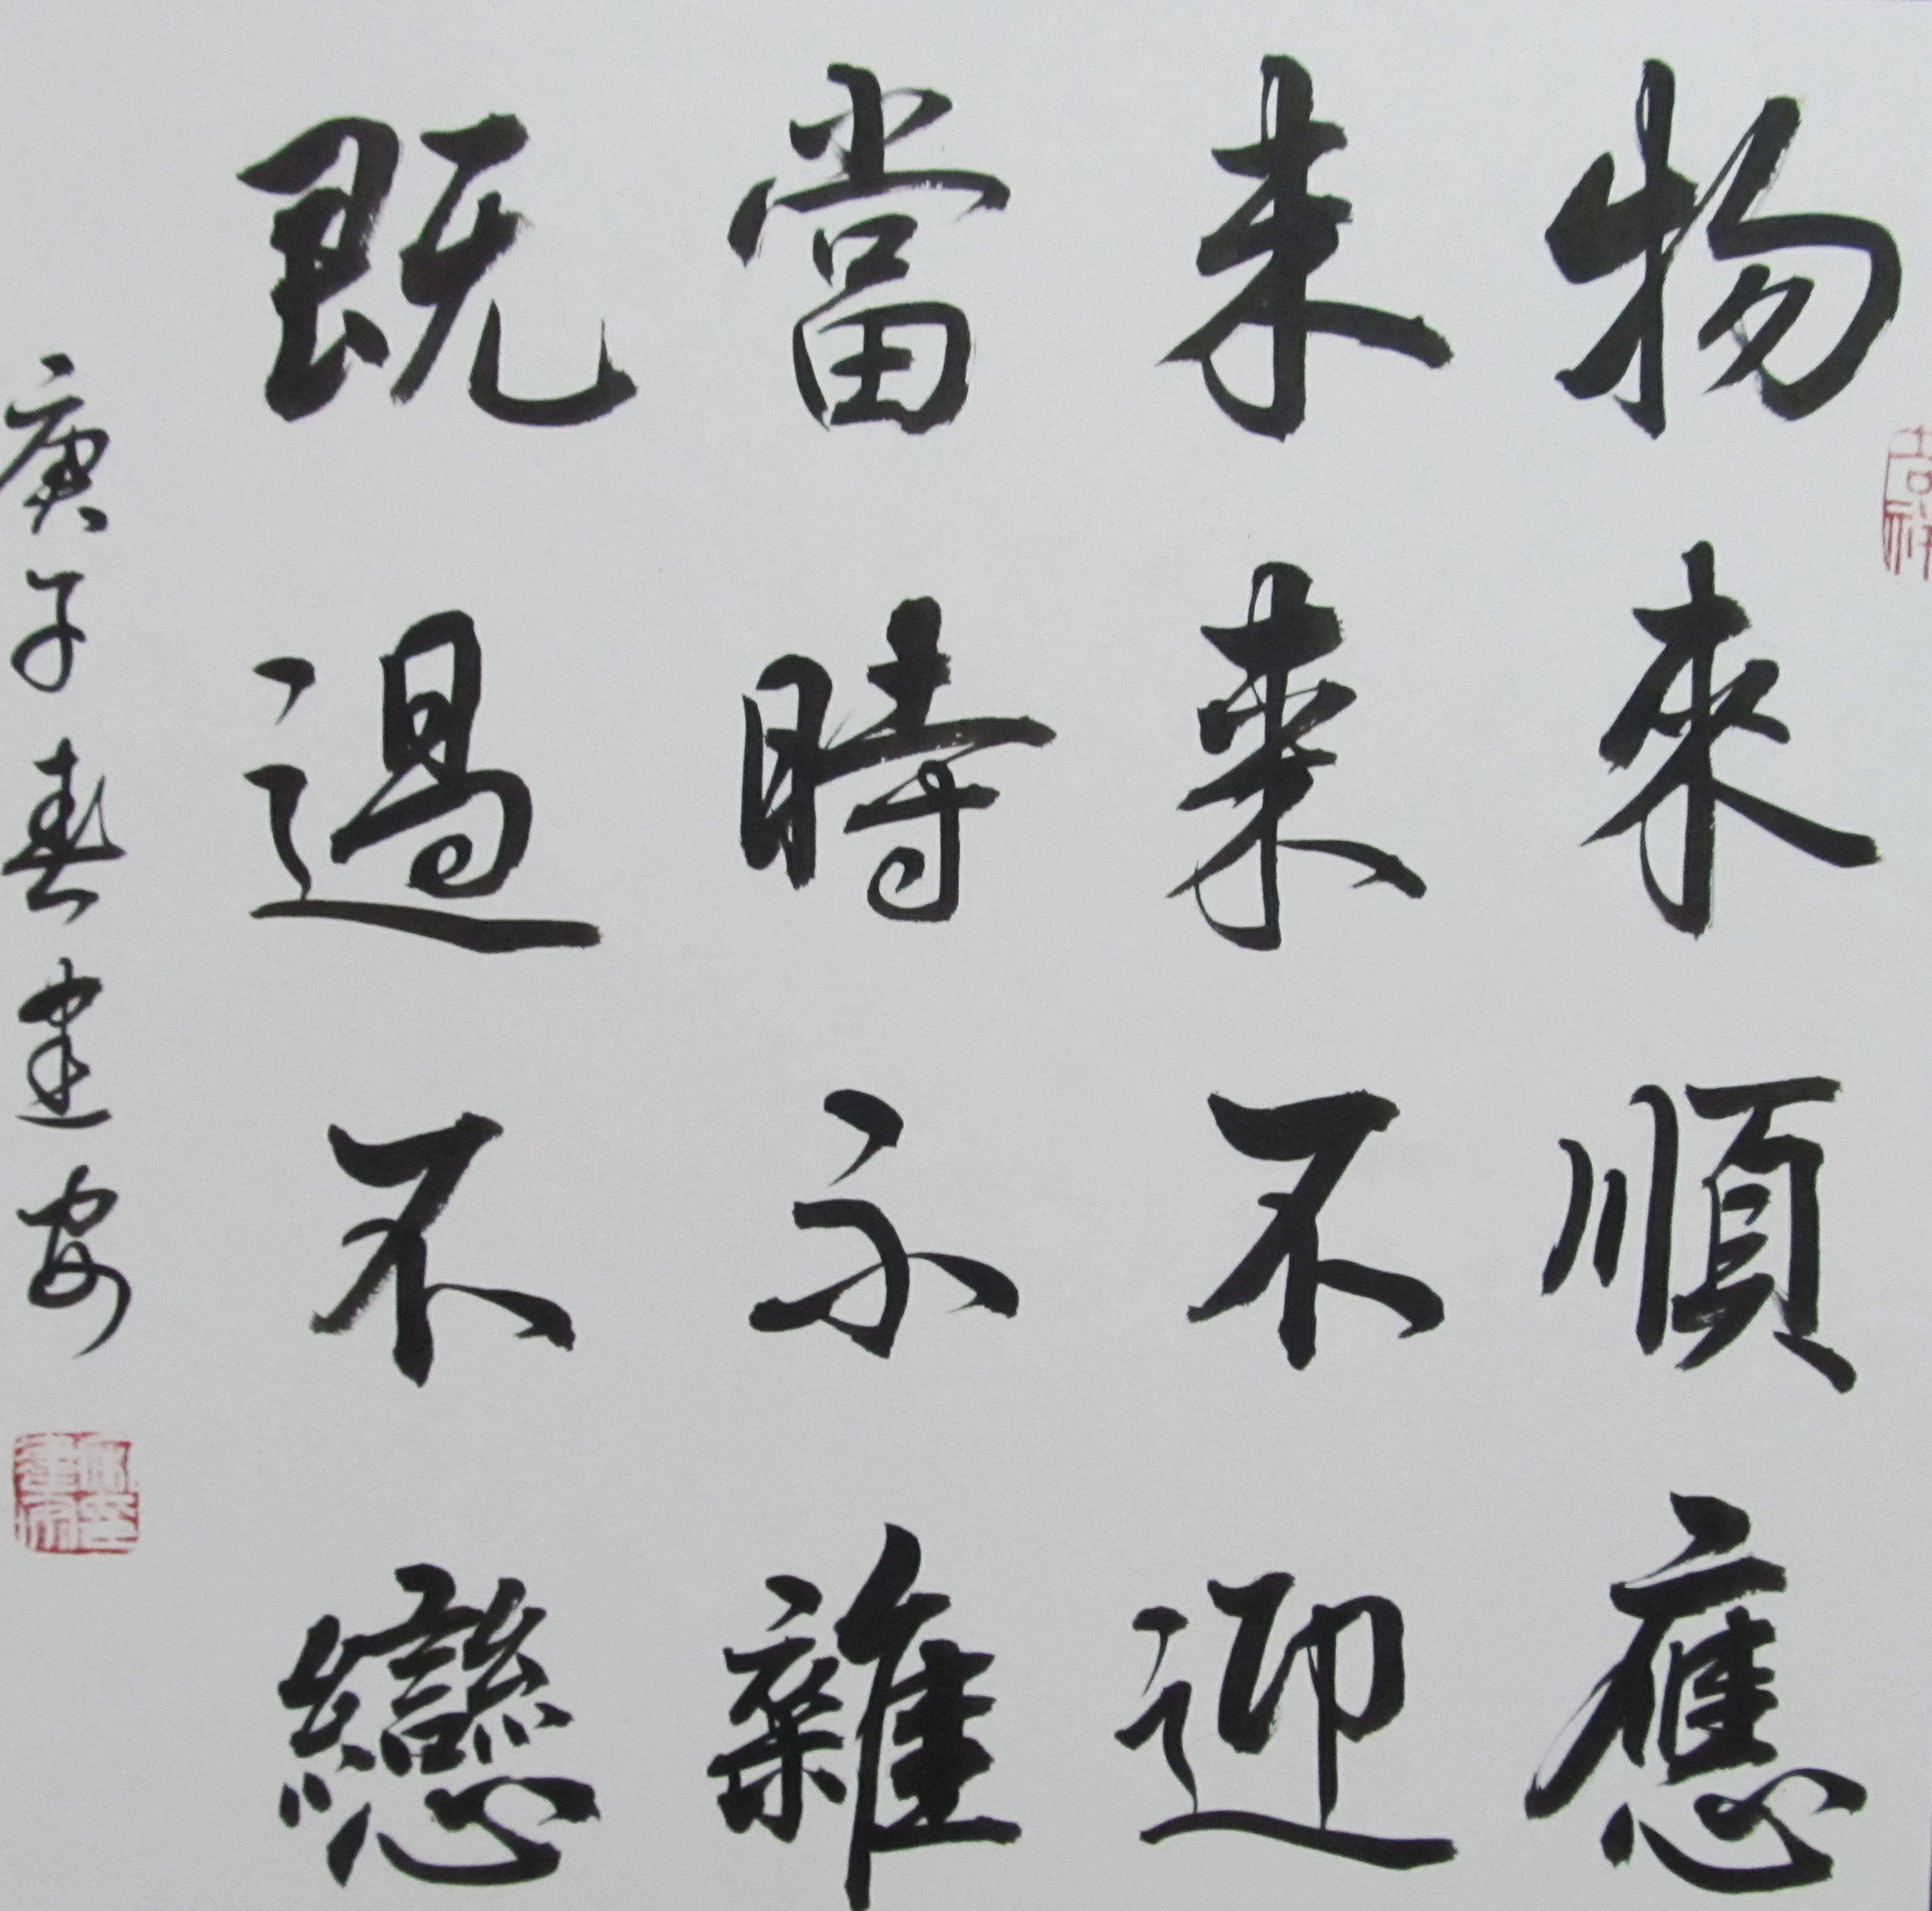 物來順應
未来不迎
當時不雜
既過不戀
庚子春建安